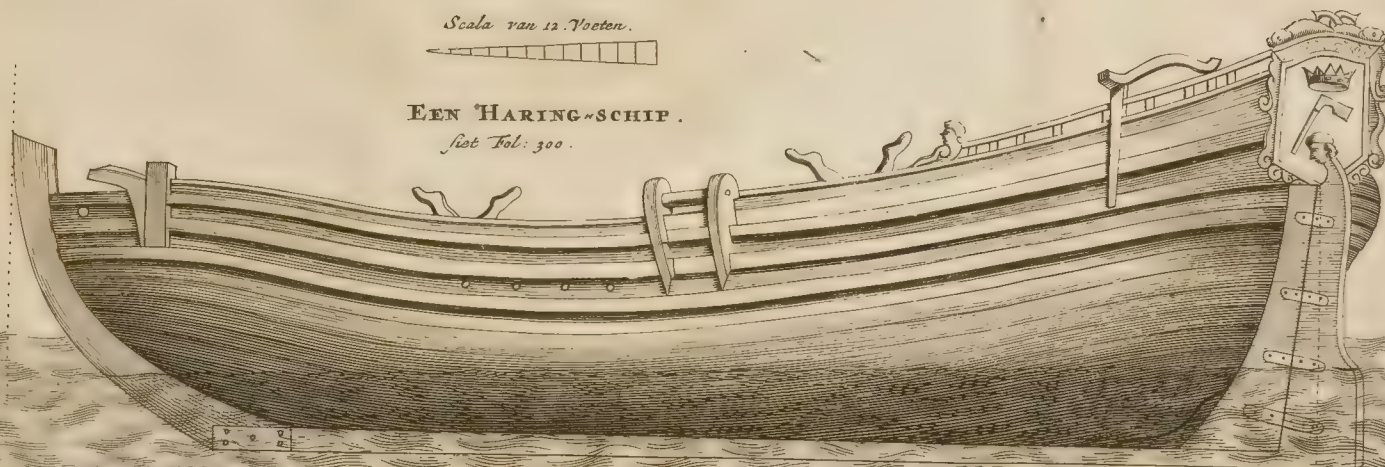 Scala van 12. Voeten.
EEN HARING-SCHIP.
siet Fol: 300.